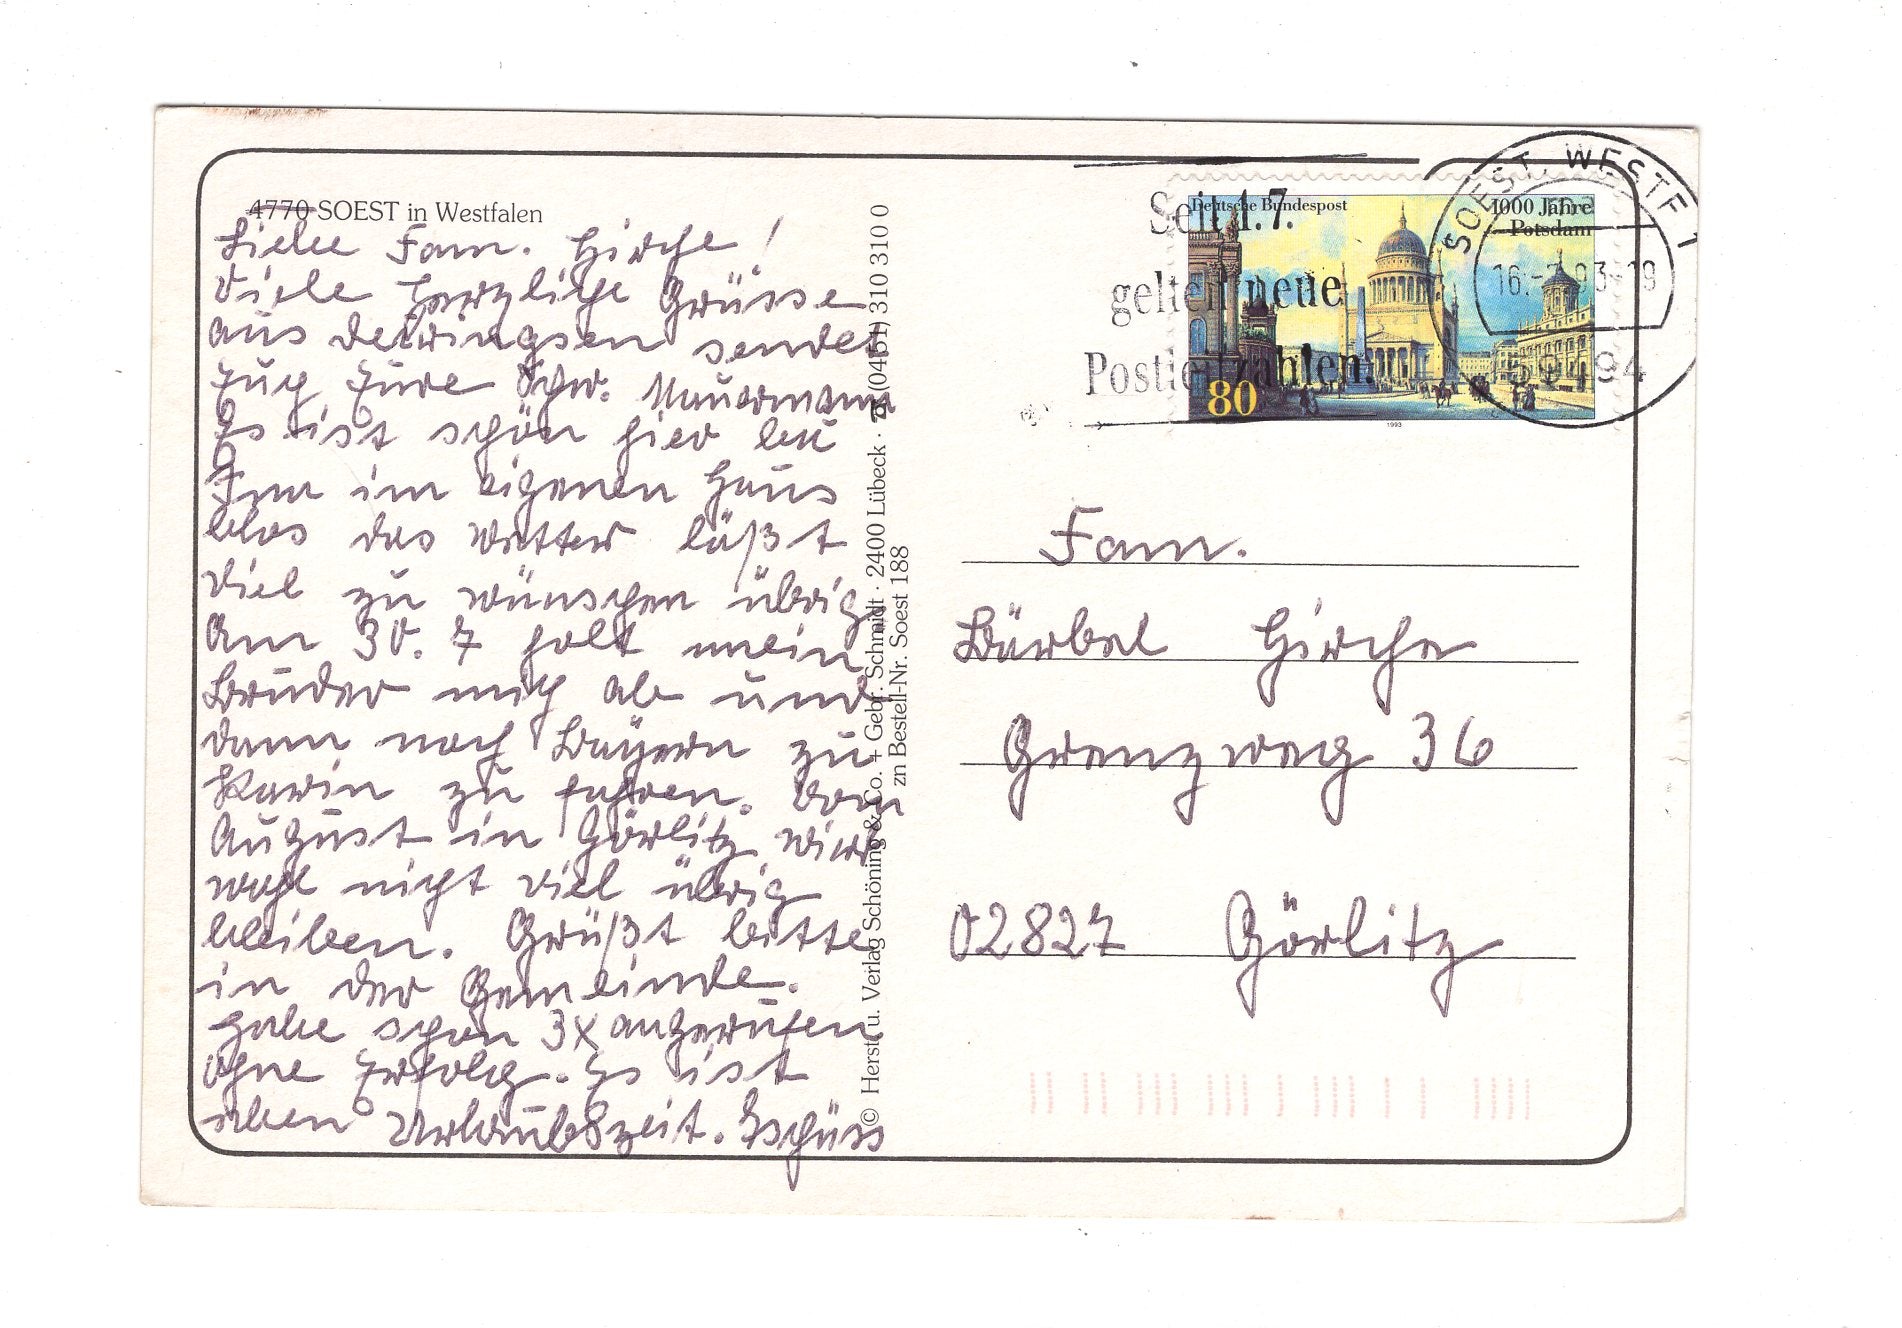 4770 SOEST in Westfalen
Liebe Fam. Hirche!
Viele herzliche Grüsse
aus Deiringsen sendet
Euch Eure Schw. Mauermann
Es ist schön hier bei
Ina im eigenen Haus
blos das Wetter läßt
viel zu wünschen übrig
Am 30. 7 holt mein
Bruder mich ab und
dann nach Bayern zu
Karin zu fahren. Vom
August in Görlitz wird
wohl nicht viel übrig
bleiben. Grüßt bitte
in der Gemeinde.
Habe schon 3x angerufen
ohne Erfolg. Es ist
eben Urlaubszeit. Tschüss
© Herst. u. Verlag Schöning & Co. + Gebr. Schmidt · 2400 Lübeck · ☎ (0451) 310 310 0
zn Bestell-Nr. Soest 188
Seit 1.7.
gelten neue
Postleitzahlen.
Deutsche Bundespost
1000 Jahre
Potsdam
80
1993
SOEST, WESTF 1
16.-7.93-19
59494
Fam.
Bärbel Hirche
Grenzweg 36
02827 Görlitz